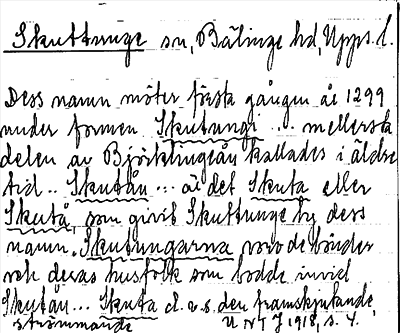 Skuttunge sn, Bälinge hd, Upps. l.
Dess namn möter första gången år 1299
under formen Skutungi ... mellersta
delen av Björklingeån kallades i äldre
tid .. Skutån ... är det Skuta eller
Skutå, som givit Skuttunge by dess
namn. Skutungarna voro de bönder
och deras husfolk som bodde invid
Skutån ... Skuta d.v.s. den framskjutande,
strömmande U N T J 1918, s. 4.